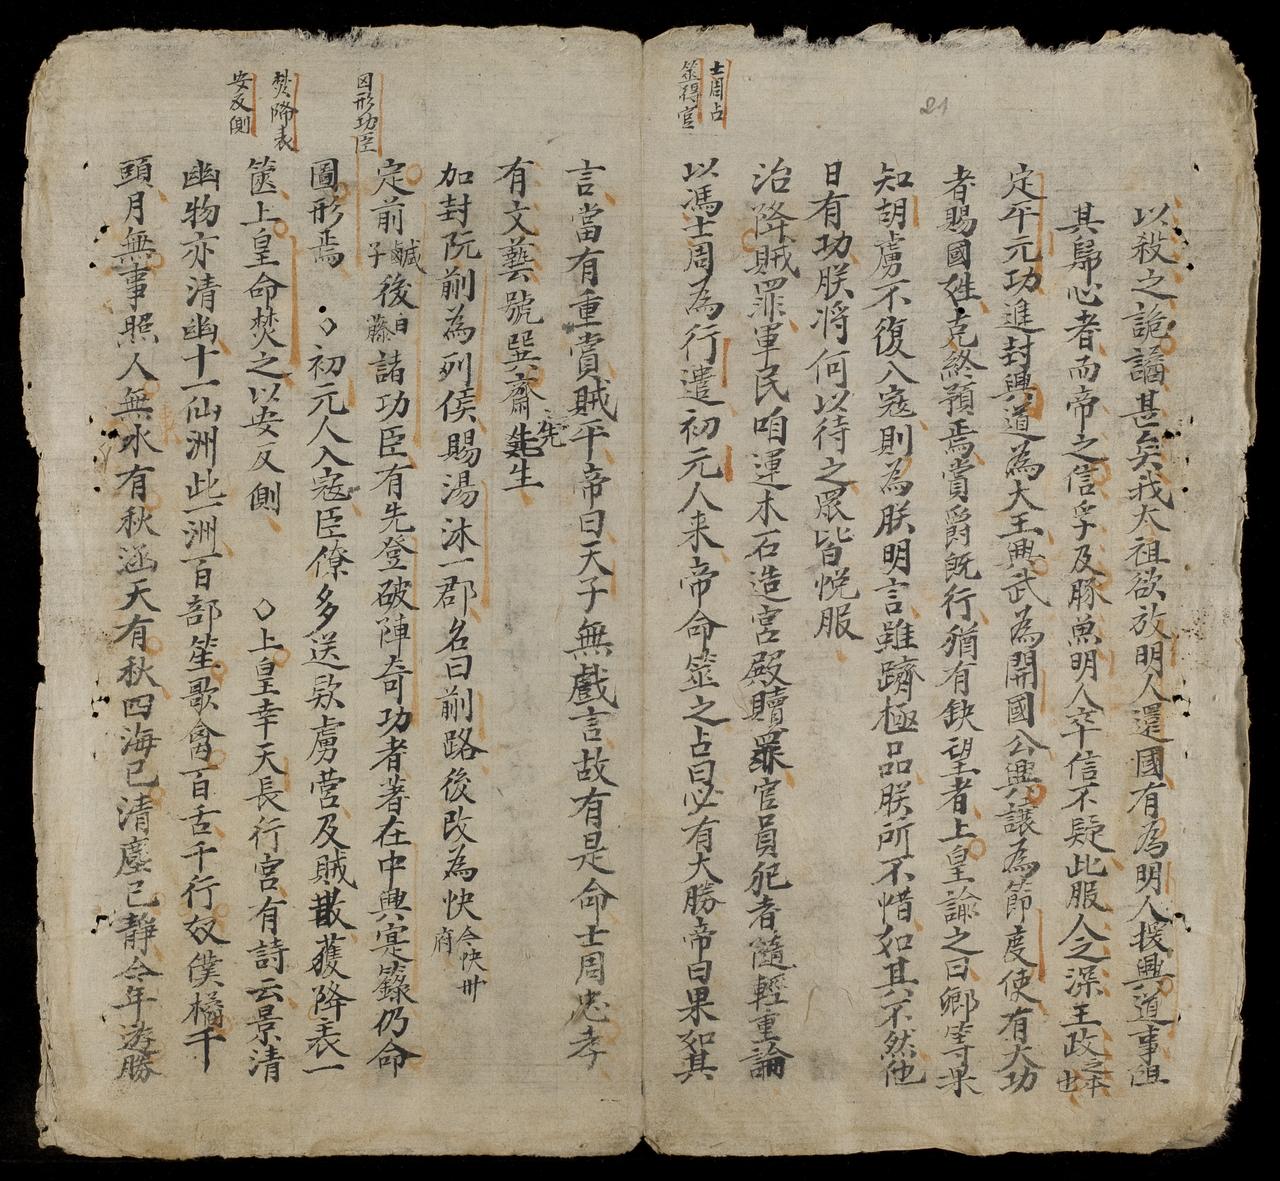 以殺之詭譎甚矣我太祖欲放明人還國有為明人援興道事沮
其歸心者而帝之信孚及豚魚明人卒信不疑此服人之深王政之本也
定平元功進封興道為大王興武為開國公興讓為節度使有大功
者賜國姓克終預焉賞爵既行猶有缺望者上皇諭之曰卿等果
知胡虜不復入寇則為朕明言雖躋極品朕所不惜如其不然他
日有功朕將何以待之眾皆悅服
治降賊罪軍民咱運木石造宮殿贖罪官員犯者隨輕重論
士周占
筮得官
以馮士周為行遣初元人来帝命筮之占曰必有大勝帝曰果如其
言當有重賞賊平帝曰天子無戲言故有是命士周忠孝
有文藝號巽齋先生
加封阮蒯為列侯賜湯沐一郡名曰蒯路後改為快今快州府
圖形功臣
定前鹹子後白藤諸功臣有先登破陣奇功者著在中興寔籙仍命
圖形焉 初元人入寇臣僚多送欵虜營及賊散獲降表一
焚降表
安反側
篋上皇命焚之以安反側 上皇幸天長行宮有詩云景清
幽物亦清幽十一仙洲此一洲百部笙歌禽百舌千行奴僕橘千
頭月無事照人無水有秋涵天有秋四海已清塵已靜今年遊勝
21